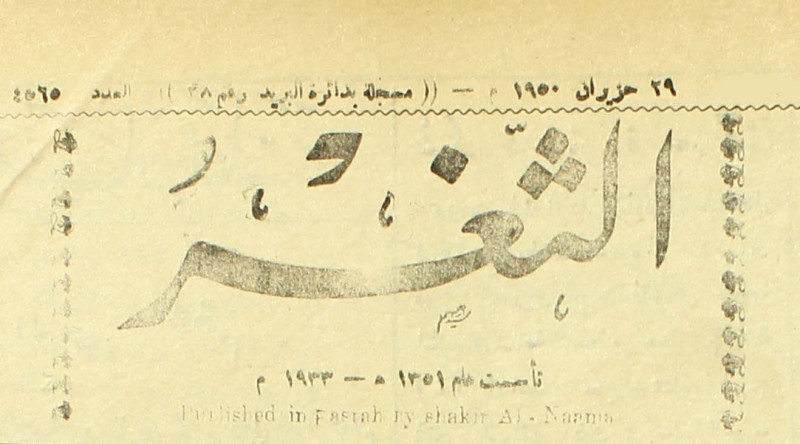 ٢٩ حزيران ١٩٥٠ م — (( مسجلة بدائرة البريد رقم ٣٨ )) العدد ٤٥٦٥
الثَّغْرُ
تأسست عام ١٣٥١ ه — ١٩٣٣ م
Published in Basrah by shakir Al - Naama